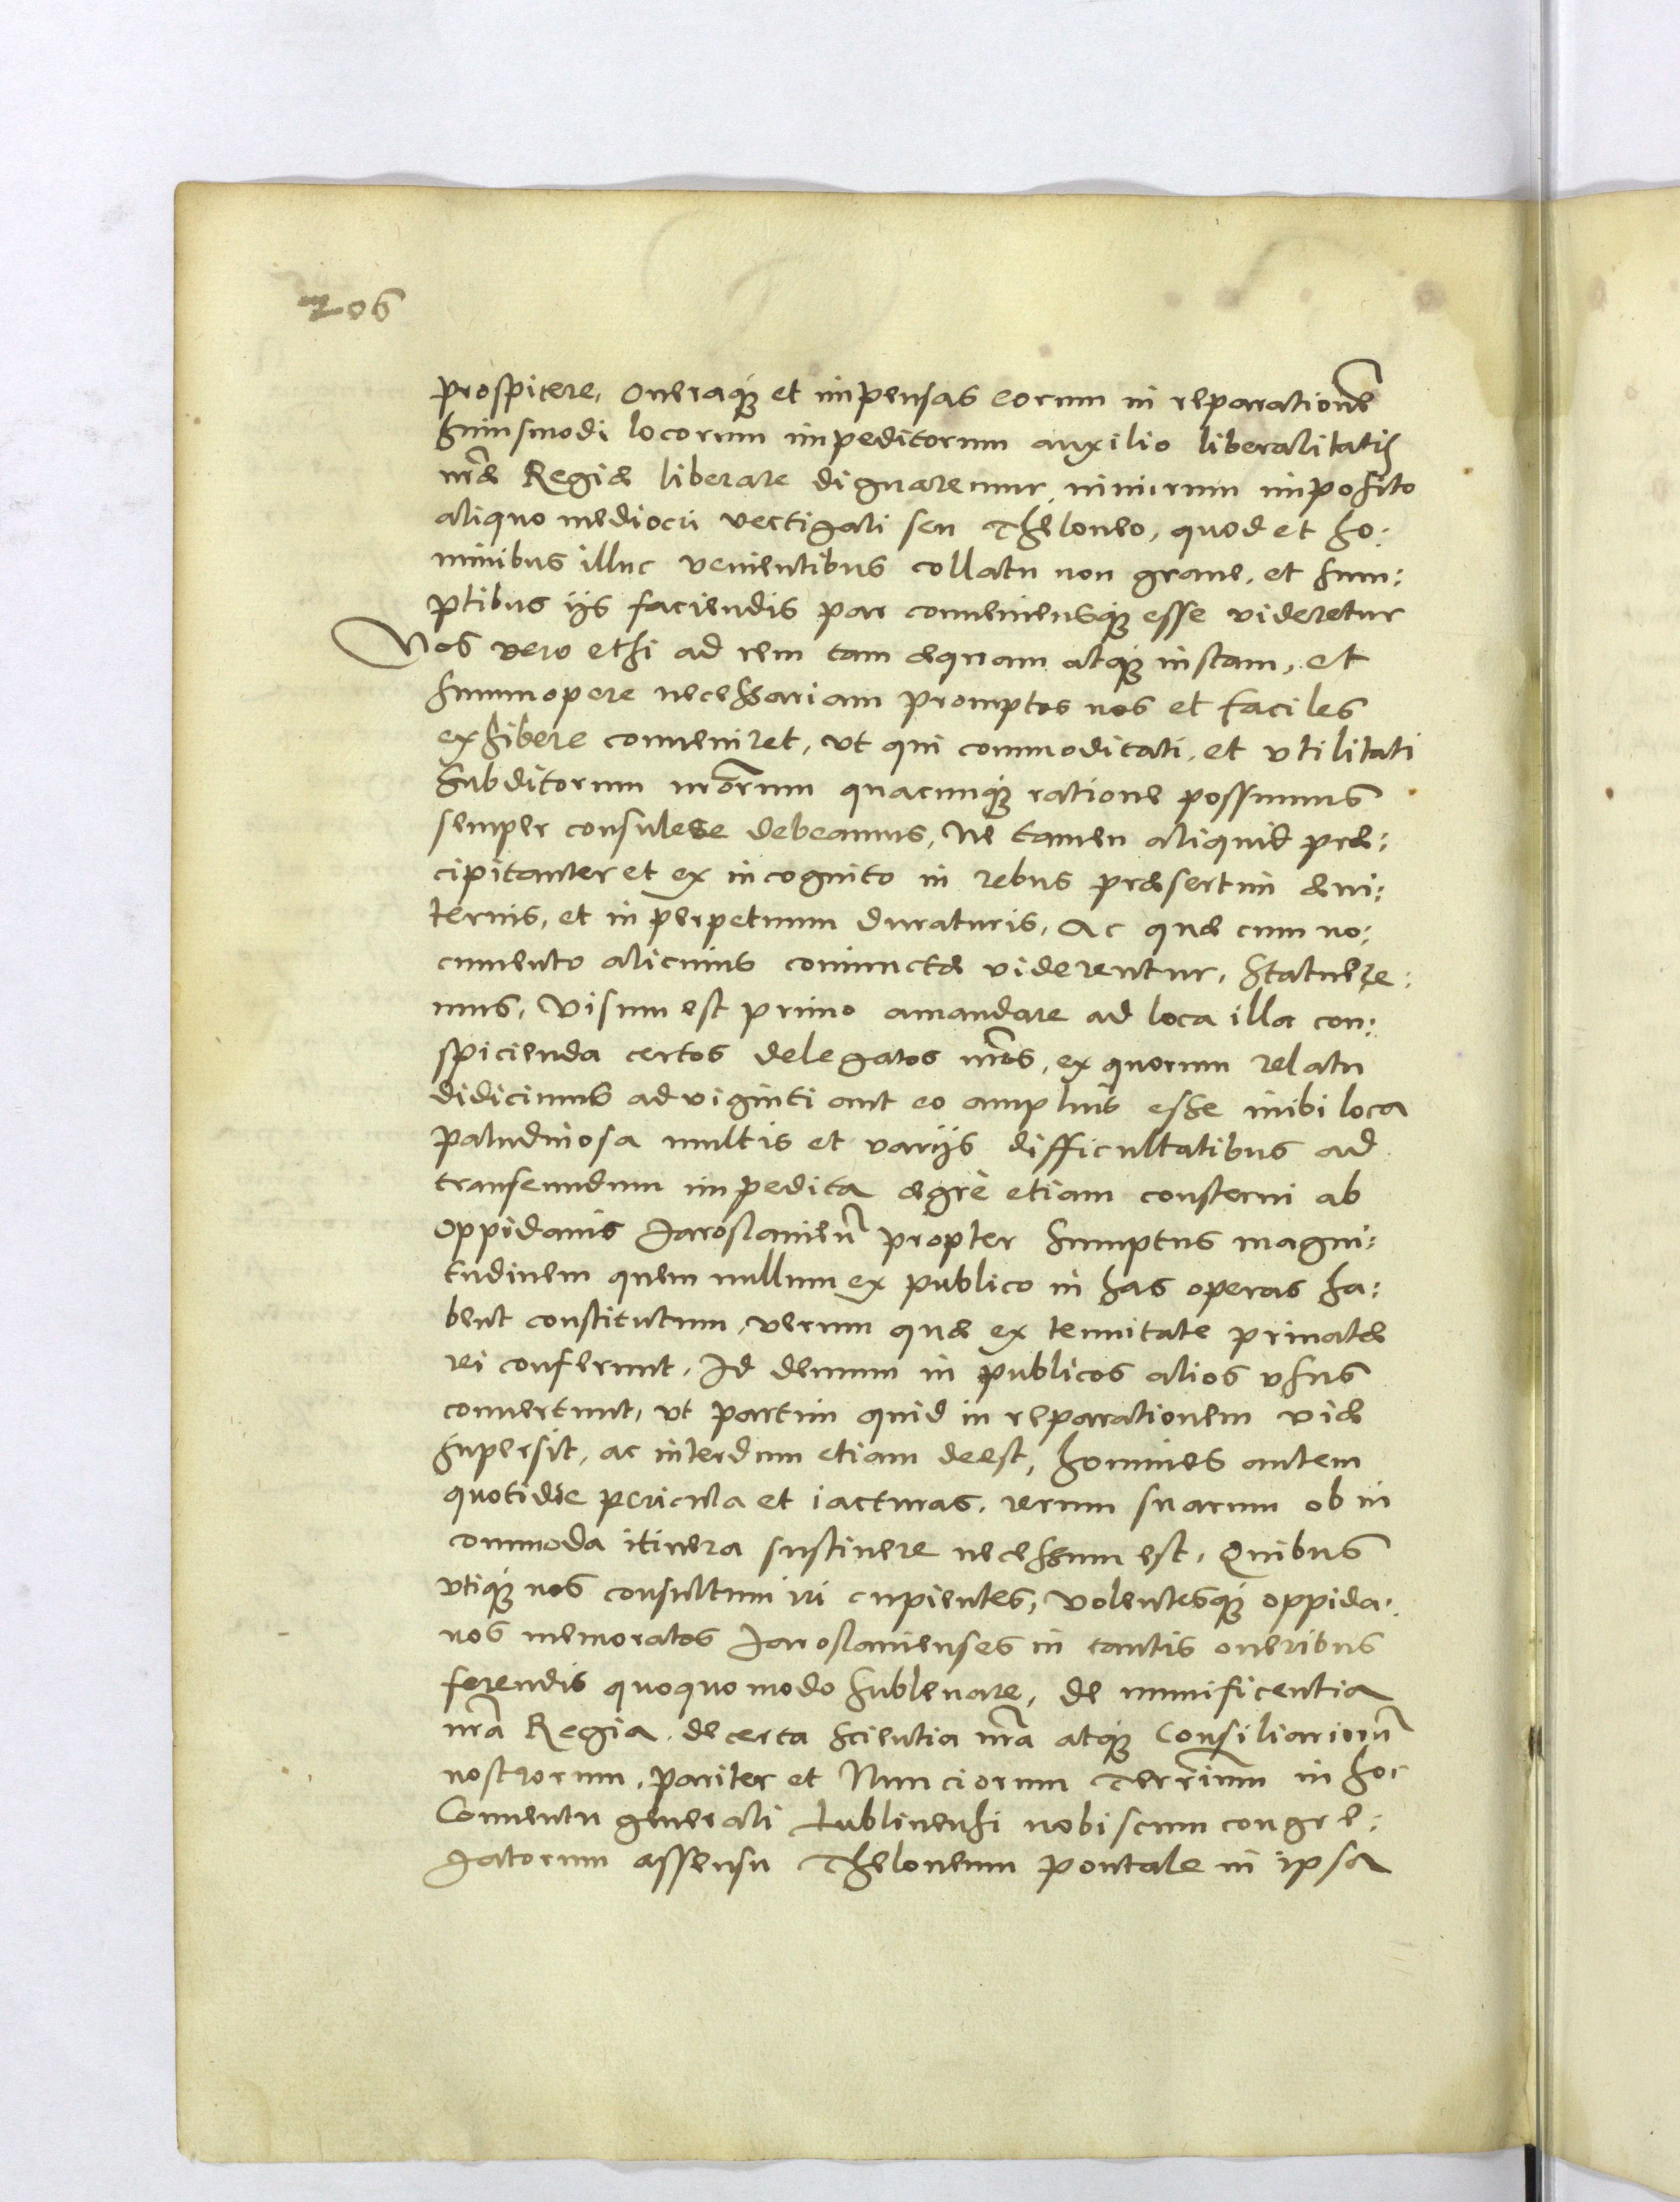 prospicere, oneraque et impensas eorum in reparatione
huiusmodi locorum impeditorum auxilio liberalitatis
nr̃æ Regiæ liberare dignaremur, nimirum imposito
aliquo mediocri vectigali seu Theloneo, quod et ho:
minibus illuc venientibus collatu non graue, et sum:
ptibus ijs faciendis par conueniensque esse videretur
Nos vero etsi ad rem tam æquam atque iustam, et
summopere necessariam promptos nos et faciles
exhibere conueniret, vt qui commoditati, et vtilitati
Subditorum nr̃orum quacunque ratione possumus
semper consulere debeamus, Ne tamen aliquid præ:
cipitanter et ex incognito in rebus præsertim æui:
ternis, et in perpetuum duraturis, Ac quæ cum no:
cumento alicuius coniunctæ viderentur, Statuere:
mus, Visum est primo amandare ad loca illa con:
spicienda certos delegatos nr̃os, ex quorum relatu
didicimus ad viginti aut eo amplius esse inibi loca
paludinosa multis et varijs difficultatibus ad
transeundum impedita ægrè etiam consterni ab
Oppidanis Jaroslauień propter sumptus magni:
tudinem quem nullum ex publico in has operas ha:
bent constitutum, verum quæ ex tenuitate priuatæ
rei conferunt, Id demum in publicos alios vsus
conuertunt, vt partim quid in reparationem viæ
supersit, ac interdum etiam deest, homines autem
quotidie pericula et iacturas, rerum suarum ob in
commoda itinera sustinere necessum est, Quibus
vtique nos consultum iri cupientes, volentesque oppida:
nos memoratos Jaroslauienses in tantis oneribus
ferendis quoquo modo subleuare, de munificentia
nr̃a Regia, de certa scientia nr̃a atque Consiliariorũ
nostrorum, pariter et Nunciorum Terr̃ium in hoc
Conuentu generali Lublinensi nobiscum congre:
gatorum assensu Theloneum pontale in ipsa